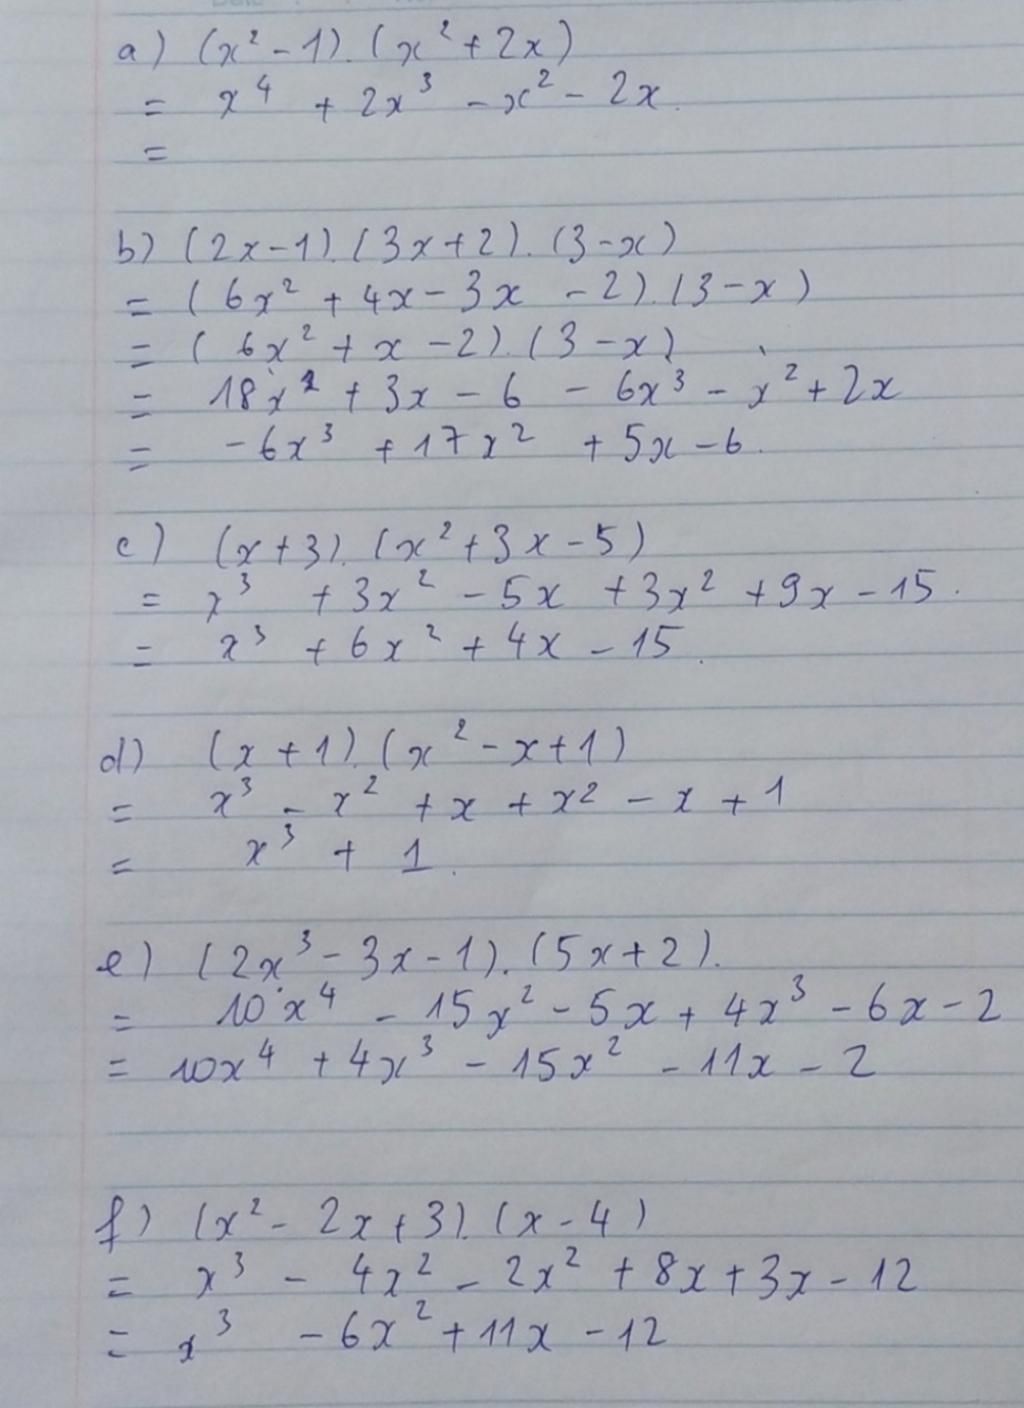 a) (x² - 1). (x² + 2x)
= x⁴ + 2x³ - x² - 2x.
=
b) (2x - 1). (3x + 2). (3 - x)
= (6x² + 4x - 3x - 2). (3 - x)
= (6x² + x - 2). (3 - x)
= 18x² + 3x - 6 - 6x³ - x² + 2x
= -6x³ + 17x² + 5x - 6.
c) (x + 3). (x² + 3x - 5)
= x³ + 3x² - 5x + 3x² + 9x - 15.
= x³ + 6x² + 4x - 15.
d) (x + 1). (x² - x + 1)
= x³ - x² + x + x² - x + 1
= x³ + 1.
e) (2x³ - 3x - 1). (5x + 2).
= 10x⁴ - 15x² - 5x + 4x³ - 6x - 2
= 10x⁴ + 4x³ - 15x² - 11x - 2
f) (x² - 2x + 3). (x - 4)
= x³ - 4x² - 2x² + 8x + 3x - 12
= x³ - 6x² + 11x - 12